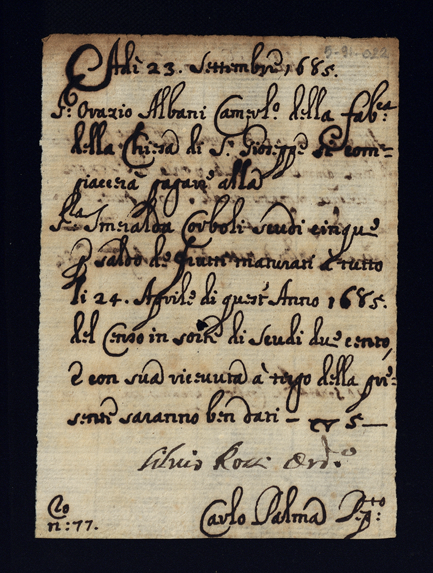 5-91-022
Adì 23. Settembre 1685.
S.r Orazio Albani Camerl.o della fab.ca
della Chiesa di S. Gioseppe si com=
piacerà pagare alla
S.ra Smeralda Corboli scudi cinque
p saldo de frutti maturati à tutto
li 24. Aprile di quest'Anno 1685.
del Censo in sorte di scudi due cento,
e con sua ricevuta à tergo della pre=
sente saranno ben dati — 5 —
Silvio Ord.o
Carlo Palma
n: 77.